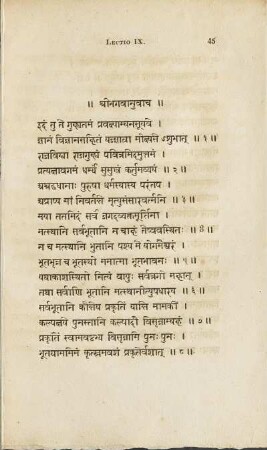 LECTIO IX. 45
॥ श्रीभगवानुवाच ॥
इदं तु ते गुह्यतमं प्रवक्ष्याम्यनसूयवे ।
ज्ञानं विज्ञानसहितं यज्ज्ञात्वा मोक्ष्यसे ऽशुभात् ॥१॥
राजविद्या राजगुह्यं पवित्रमिदमुत्तमं ।
प्रत्यक्षावगमं धर्म्यं सुसुखं कर्तुमव्ययं ॥२॥
अश्रद्दधानाः पुरुषा धर्मस्यास्य परंतप ।
अप्राप्य मां निवर्तन्ते मृत्युसंसारवर्त्मनि ॥३॥
मया ततमिदं सर्वं जगदव्यक्तमूर्तिना ।
मत्स्थानि सर्वभूतानि न चाहं तेष्ववस्थितः ॥४॥
न च मत्स्थानि भूतानि पश्य मे योगमैश्वरं ।
भूतभृन्न च भूतस्थो ममात्मा भूतभावनः ॥५॥
यथाकाशस्थितो नित्यं वायुः सर्वत्रगो महान् ।
तथा सर्वाणि भूतानि मत्स्थानीत्युपधारय ॥६॥
सर्वभूतानि कौन्तेय प्रकृतिं यान्ति मामकीं ।
कल्पक्षये पुनस्तानि कल्पादौ विसृजाम्यहं ॥७॥
प्रकृतिं स्वामवष्टभ्य विसृजामि पुनः पुनः ।
भूतग्राममिमं कृत्स्नमवशं प्रकृतेर्वशात् ॥८॥